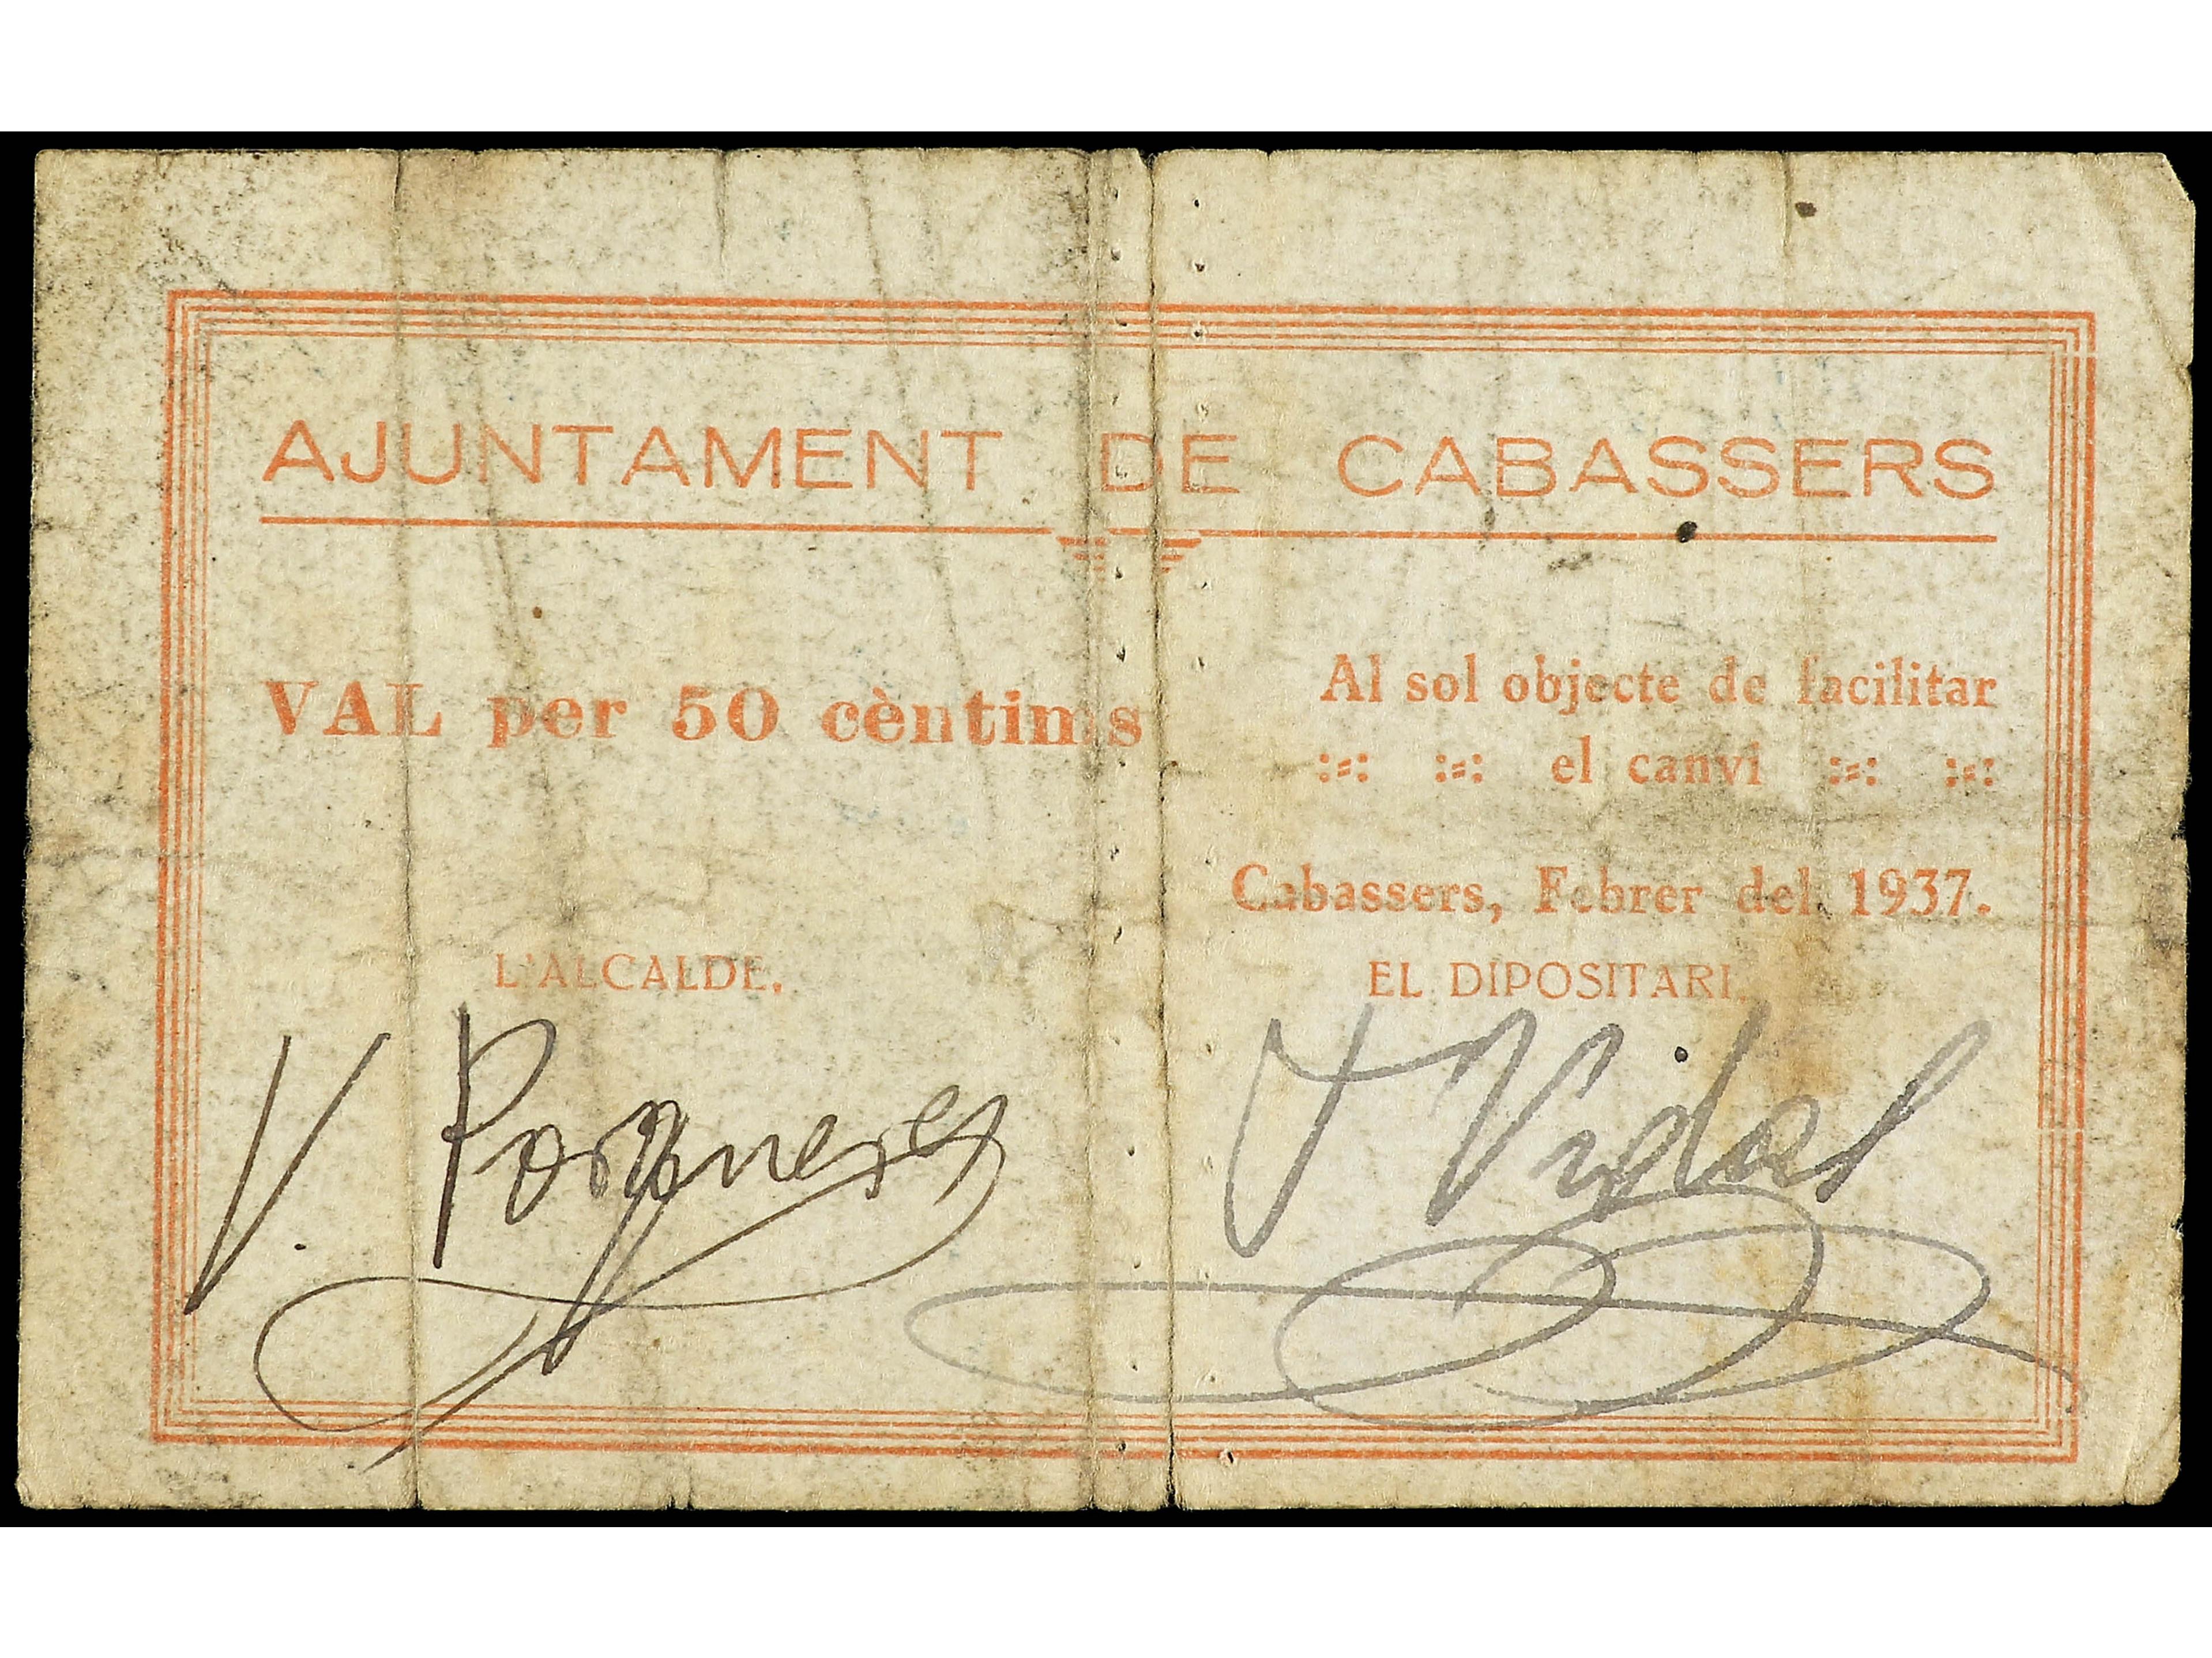 AJUNTAMENT DE CABASSERS
VAL per 50 cèntims
Al sol objecte de facilitar
:=: :=: el canvi :=: :=:
Cabassers, Febrer del 1937.
L'ALCALDE,
EL DIPOSITARI,
V.
J Vidal